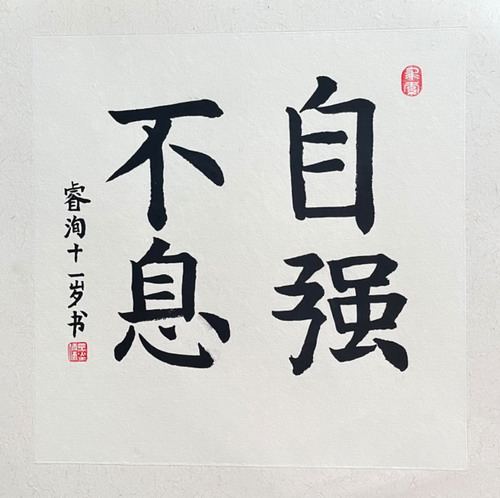 自强
不息
睿洵十一岁书